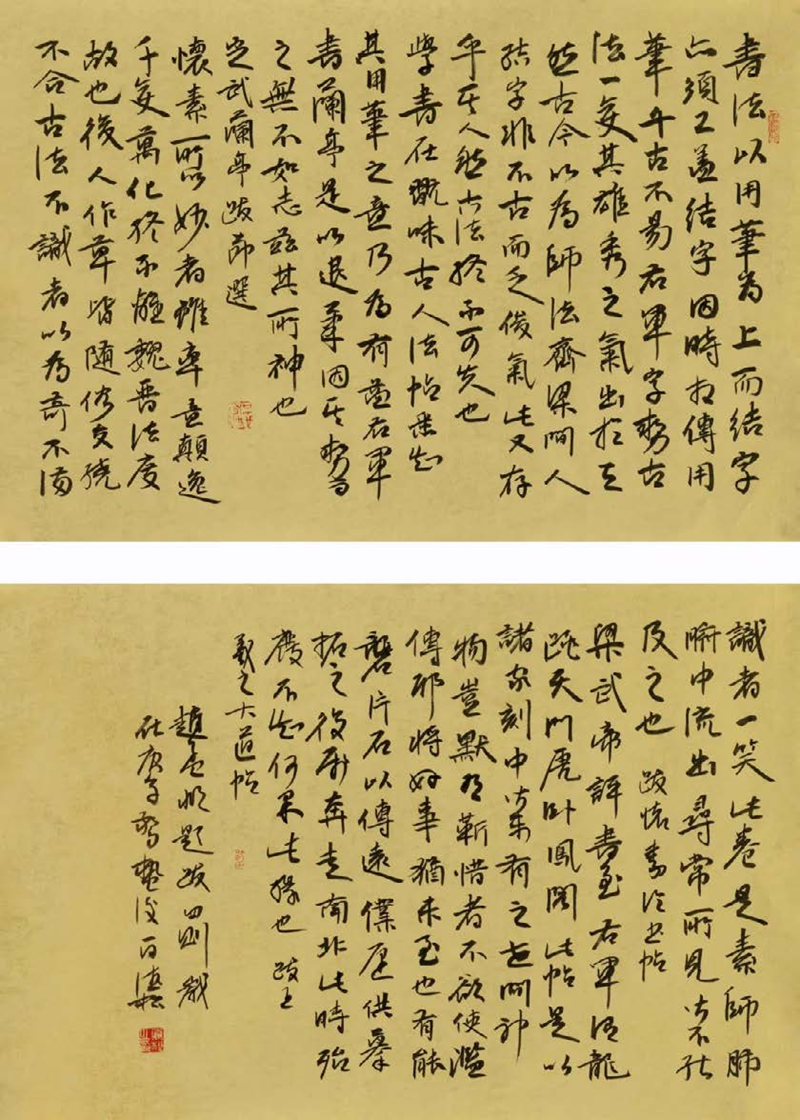 書法以用筆為上而結字
亦須工蓋結字因時相傳用
筆千古不易右軍字勢古
法一變其雄秀之氣出於天
然古今以為師法齊梁間人
結字非不古而乏俊氣此又存
乎其人然古法終不可失也
學書在玩味古人法帖悉知
其用筆之意乃為有益右軍
書蘭亭是以退筆因其勢
之無不如志茲其所神也
定武蘭亭跋節選
懷素所以妙者雖率意顛逸
千變萬化終不離魏晉法度
故也後人作草皆隨俗交繞
不合古法不識者以為奇不滿
識者一笑此卷是素師肺
腑中流出尋常所見皆不能
及之也 跋懷素論書帖
梁武帝評書至右軍謂龍
跳天門虎臥鳳闕此帖是以
諸家刻中皆有之世間神
物豈默有靳惜者不欲使濫
傳耶將好事猶未至也有能
礱片石以傳遠僕供摹
拓之役奔走南北此時殆
廢不知何果此緣也 跋王
羲之大道帖
趙孟頫題跋四則 歲
在庚子驚蟄後